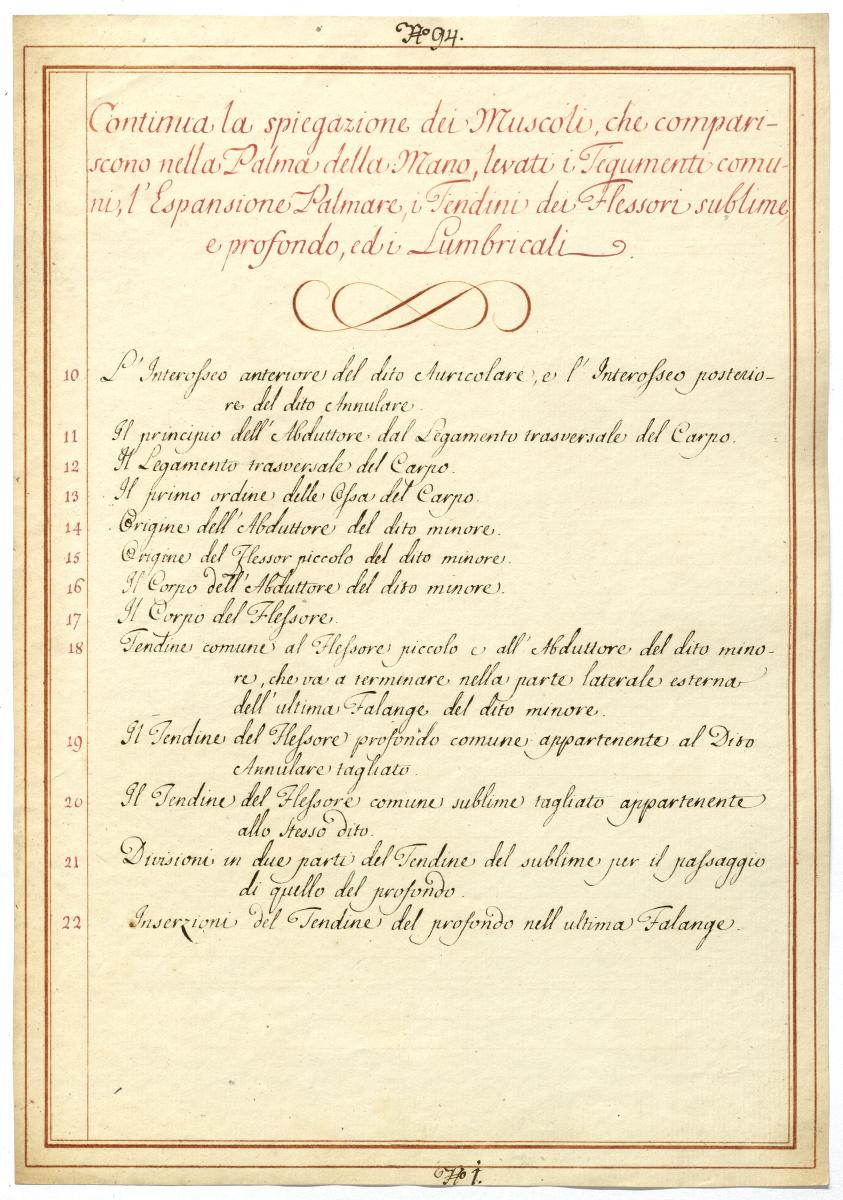 No 94.
Continua la spiegazione dei Muscoli, che compari-
scono nella Palma della Mano, levati i Tegumenti comu-
ni, l'Espansione Palmare, i Tendini dei Flessori sublime,
e profondo, ed i Lumbricali.
10 L'Interosseo anteriore del dito Auricolare, e l'Interosseo posterio-
re del dito Annulare.
11 Il principio dell'Abduttore dal Legamento trasversale del Carpo.
12 Il Legamento trasversale del Carpo.
13 Il primo ordine delle Ossa del Carpo.
14 Origine dell'Abduttore del dito minore.
15 Origine del Flessor piccolo del dito minore.
16 Il Corpo dell'Abduttore del dito minore.
17 Il Corpo del Flessore.
18 Tendine comune al Flessore piccolo e all'Abduttore del dito mino-
re, che va a terminare nella parte laterale esterna
dell'ultima Falange del dito minore.
19 Il Tendine del Flessore profondo comune appartenente al Dito
Annulare tagliato.
20 Il Tendine del Flessore comune sublime tagliato appartenente
allo stesso dito.
21 Divisioni in due parti del Tendine del sublime per il passaggio
di quello del profondo.
22 Inserzioni del Tendine del profondo nell'ultima Falange.
No 1.